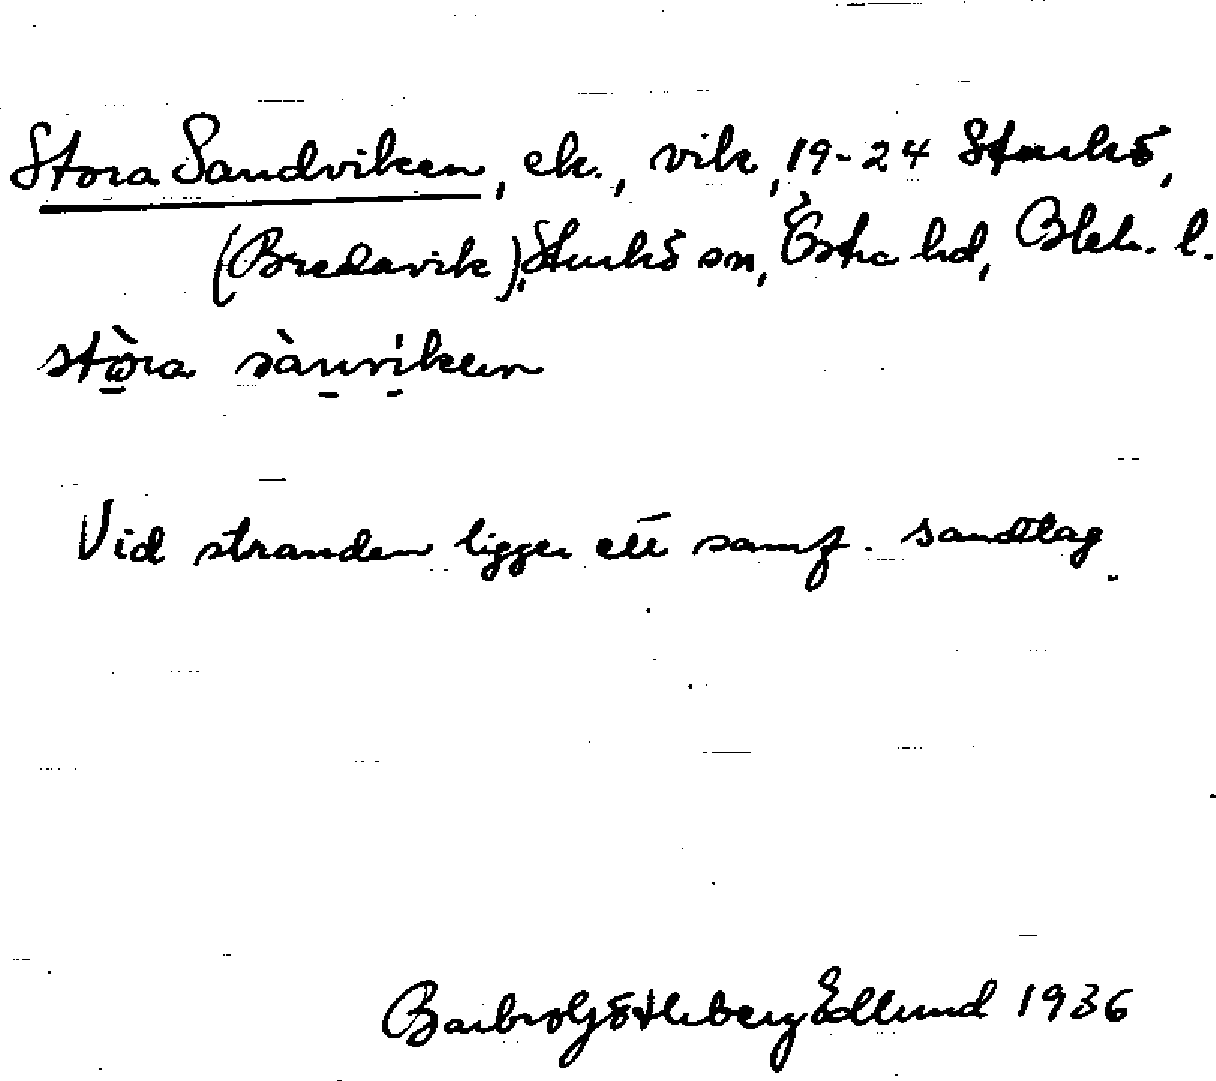 Stora Sandviken, ek., vik, 19-24 Sturkö,
(Bredavik), Sturkö sn, Östra hd, Blek. l.
stòra sànviken
Vid stranden ligger ett samf. sandtag.
Barbro Götheberg Edlund 1936